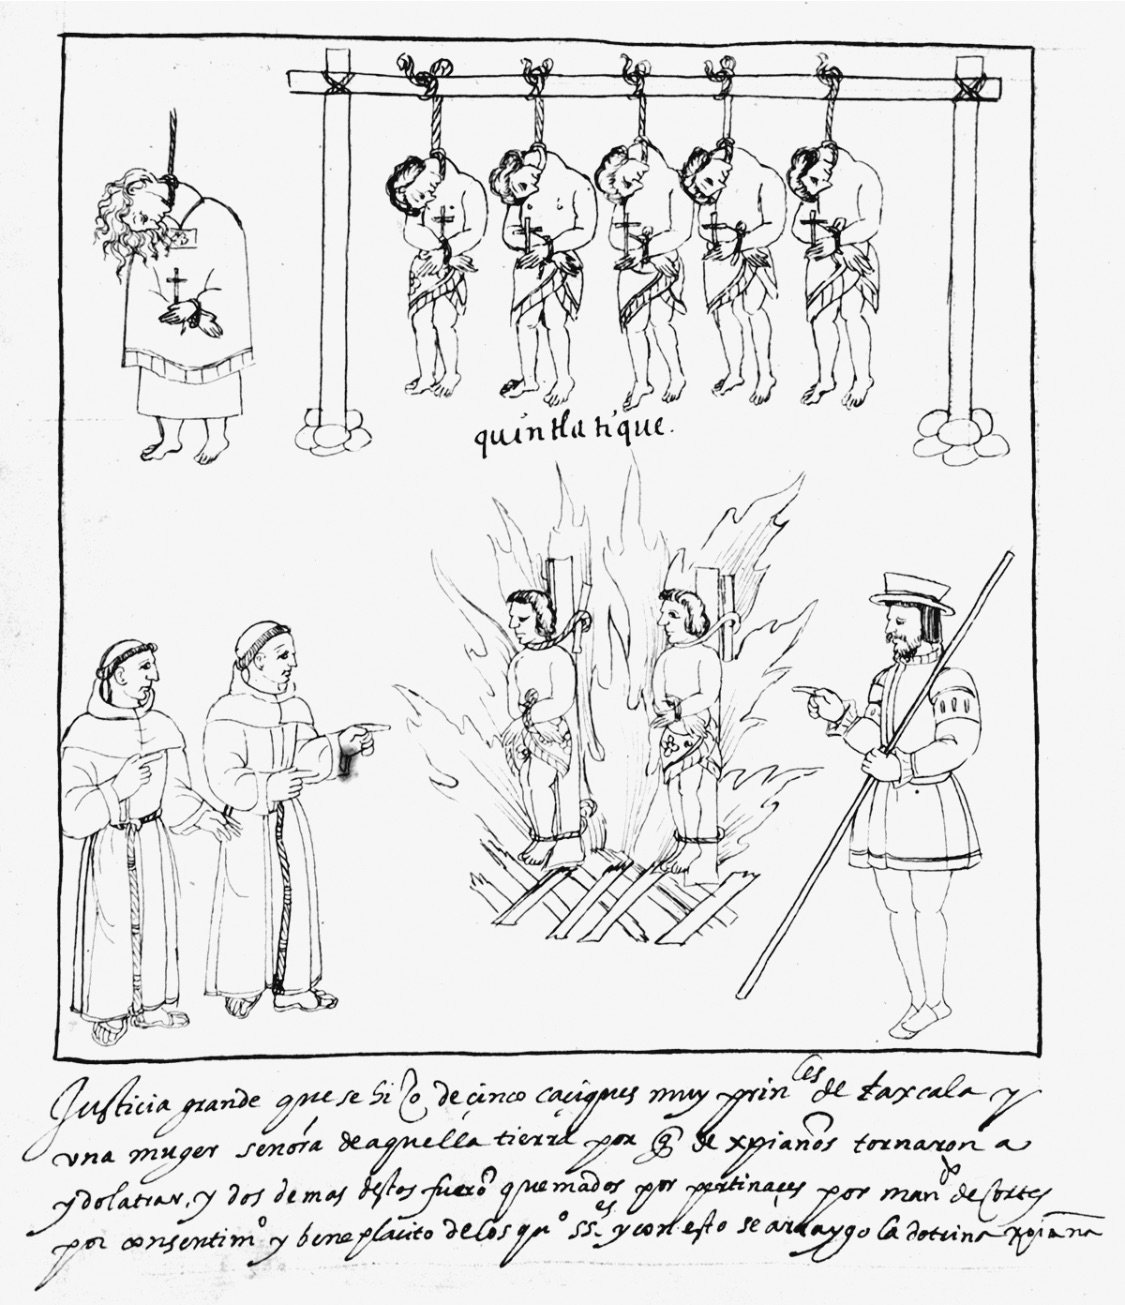 quintlatique.
Justicia grande que se hiço de cinco caçiques muy prin^(es) de taxcala y
vna muger señora de aquella tierra por q̃ de xpianos tornaron a
ydolatrar, y dos demas destos fuerõ quemados por pertinaçes por man^do de Cortes
por consentim^o y beneplaçito de los qu^o ss^(es). y con esto se araygo la dotrina xpiana